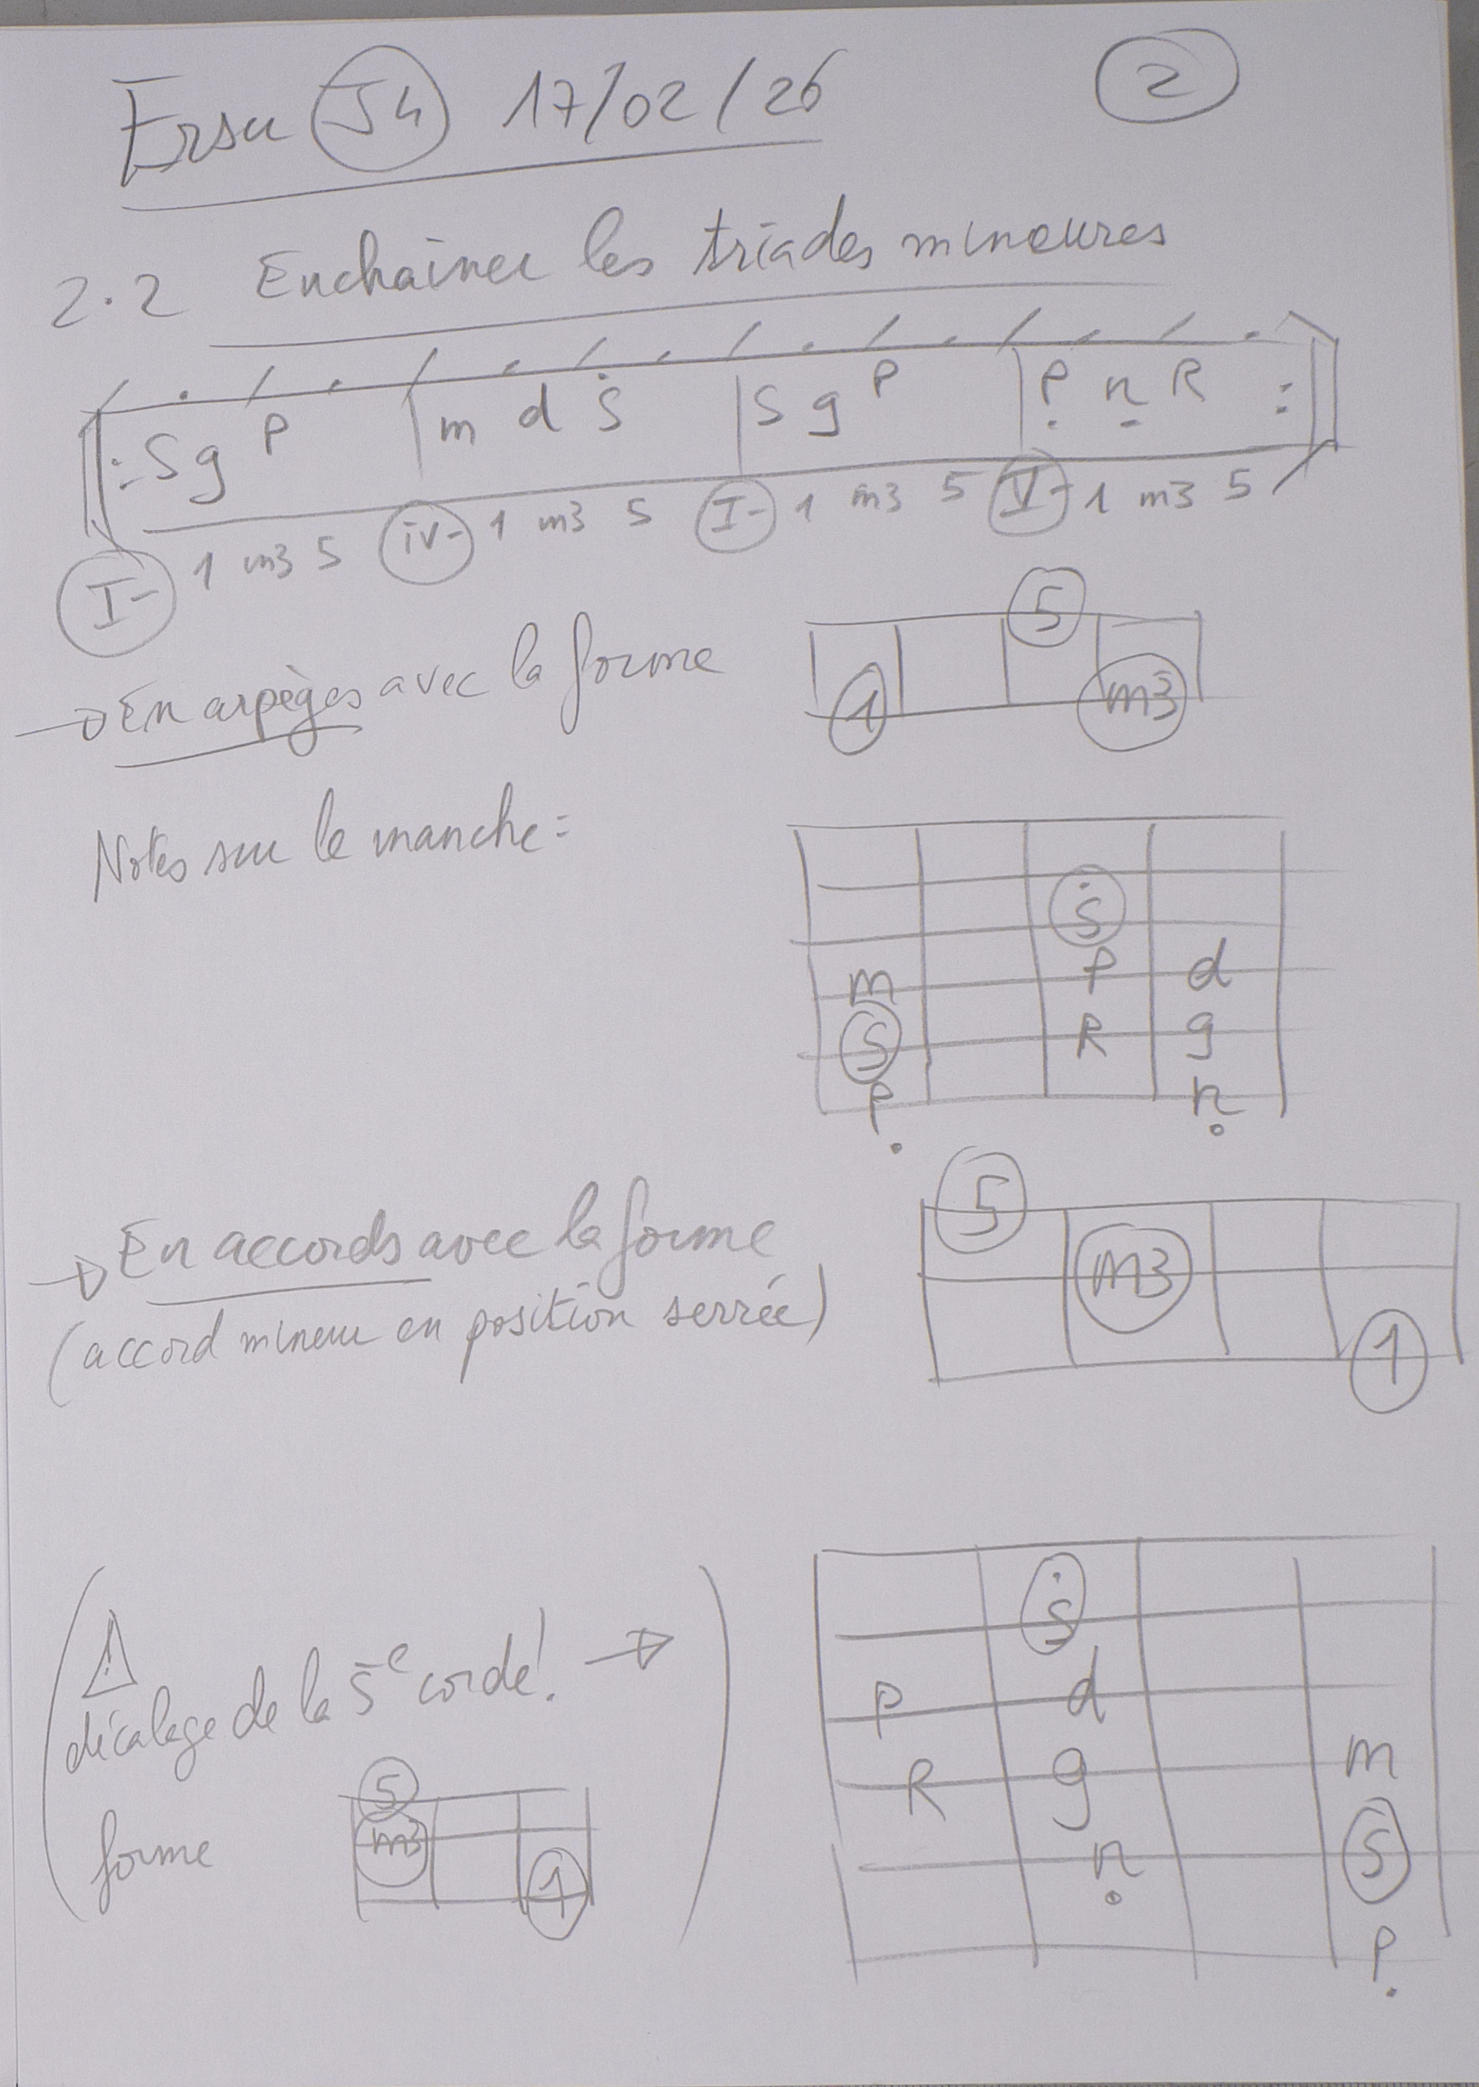 Ersu S4 17/02/26 2
2.2 Enchaîner les triades mineures
S g P m d Ṡ S g P P̣ ṇ R
I- 1 m3 5 iv- 1 m3 5 I- 1 m3 5 V- 1 m3 5
→ En arpèges avec la forme
5
1 m3
Notes sur le manche :
Ṡ
m P d
S R g
P̣ ṇ
→ En accords avec la forme
(accord mineur en position serrée)
5
m3
1
(⚠ décalage de la 5e corde! →)
forme
5
m3
1
Ṡ
P d
R g m
ṇ S
P̣